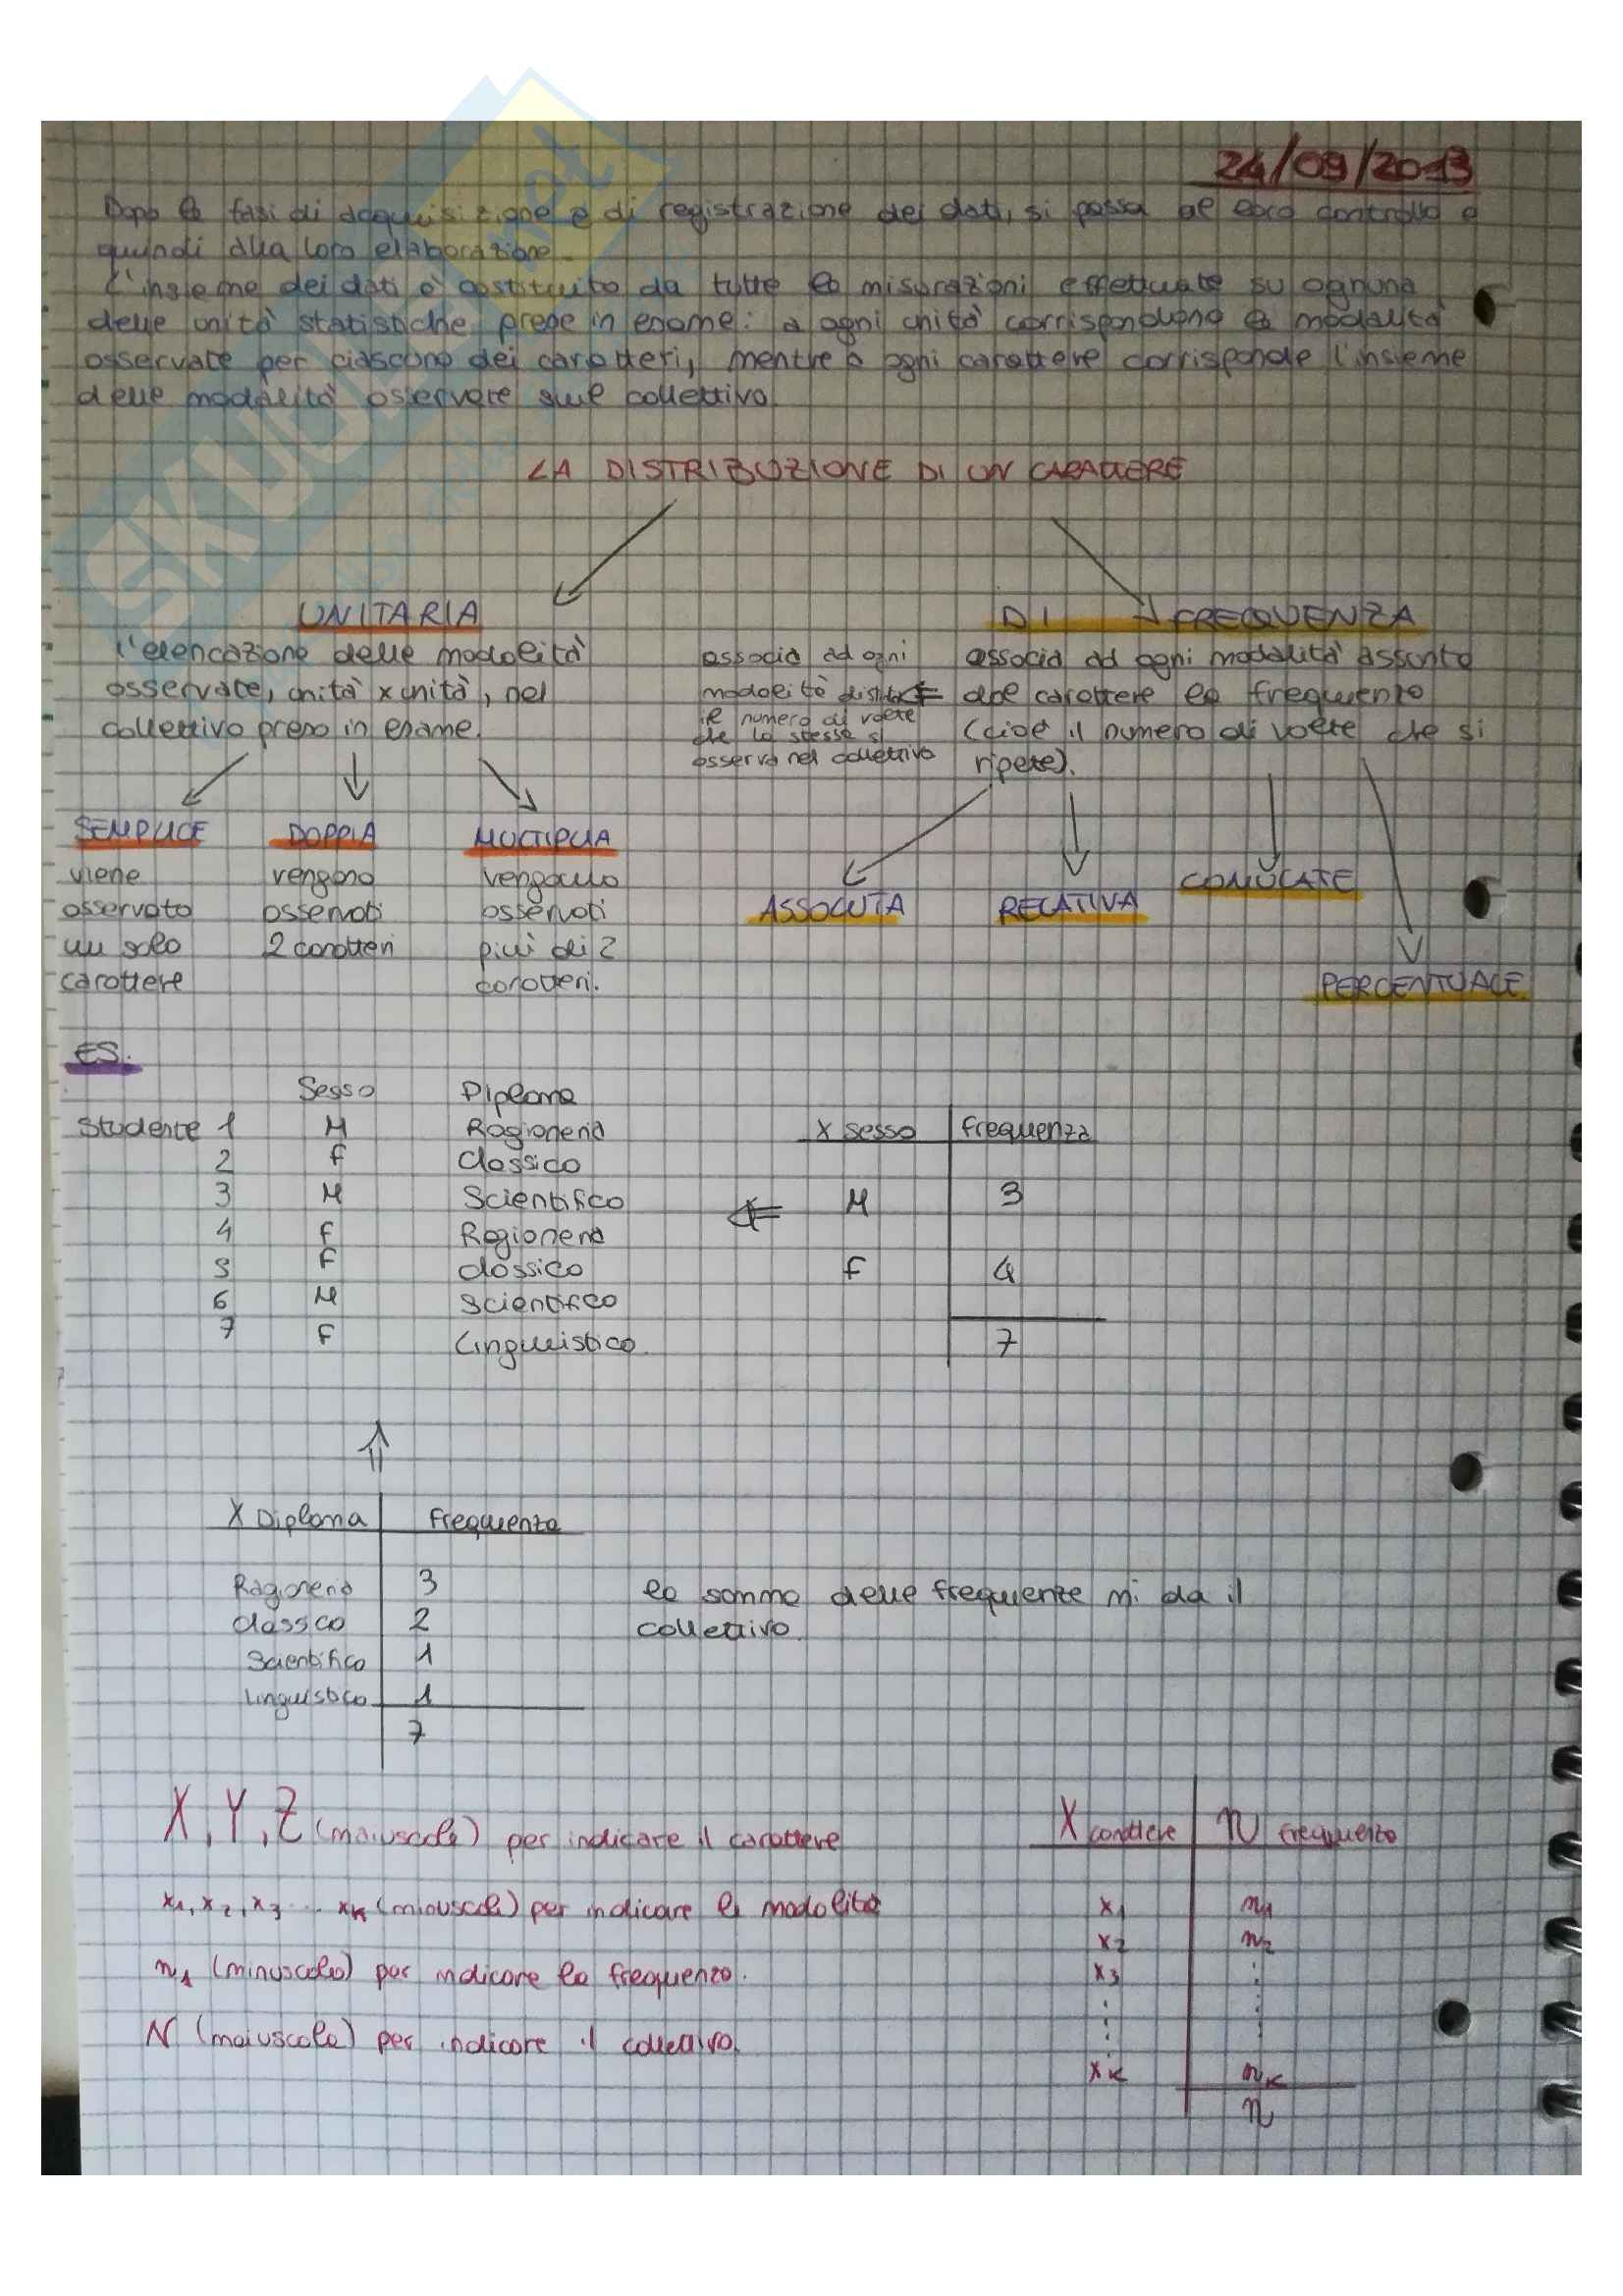 24/09/2013
Dopo le fasi di acquisizione e di registrazione dei dati, si passa al loro controllo e
quindi alla loro elaborazione.
L'insieme dei dati è costituito da tutte le misurazioni effettuate su ognuna
delle unità statistiche prese in esame: a ogni unità corrispondono le modalità
osservate per ciascuno dei caratteri, mentre a ogni carattere corrisponde l'insieme
delle modalità osservate sul collettivo.
LA DISTRIBUZIONE DI UN CARATTERE
UNITARIA
l'elencazione delle modalità
osservate, unità x unità, nel
collettivo preso in esame.
DI FREQUENZA
associa ad ogni modalità assunta
dal carattere la frequenza
(cioè il numero di volte che si
ripete).
associa ad ogni
modalità distinta
il numero di volte
che la stessa si
osserva nel collettivo
SEMPLICE
viene
osservato
un solo
carattere
DOPPIA
vengono
osservati
2 caratteri
MULTIPLIA
vengono
osservati
più di 2
caratteri.
ASSOLUTA
RELATIVA
COMULATE
PERCENTUALE
ES.
Sesso Diploma
Studente 1 M Ragioneria
2 F Classico
3 M Scientifico
4 F Ragioneria
5 F Classico
6 M Scientifico
7 F Linguistico
X sesso frequenza
M 3
F 4
7
X Diploma frequenza
Ragioneria 3
Classico 2
Scientifico 1
Linguistico 1
7
la somma delle frequenze mi da il
collettivo.
X, Y, Z (maiuscole) per indicare il carattere
x1, x2, x3 ... xk (minuscole) per indicare le modalità
n1 (minuscola) per indicare la frequenza.
N (maiuscola) per indicare il collettivo.
X carattere n frequenza
x1 n1
x2 n2
x3
xk nk
n
SKUOLA.net